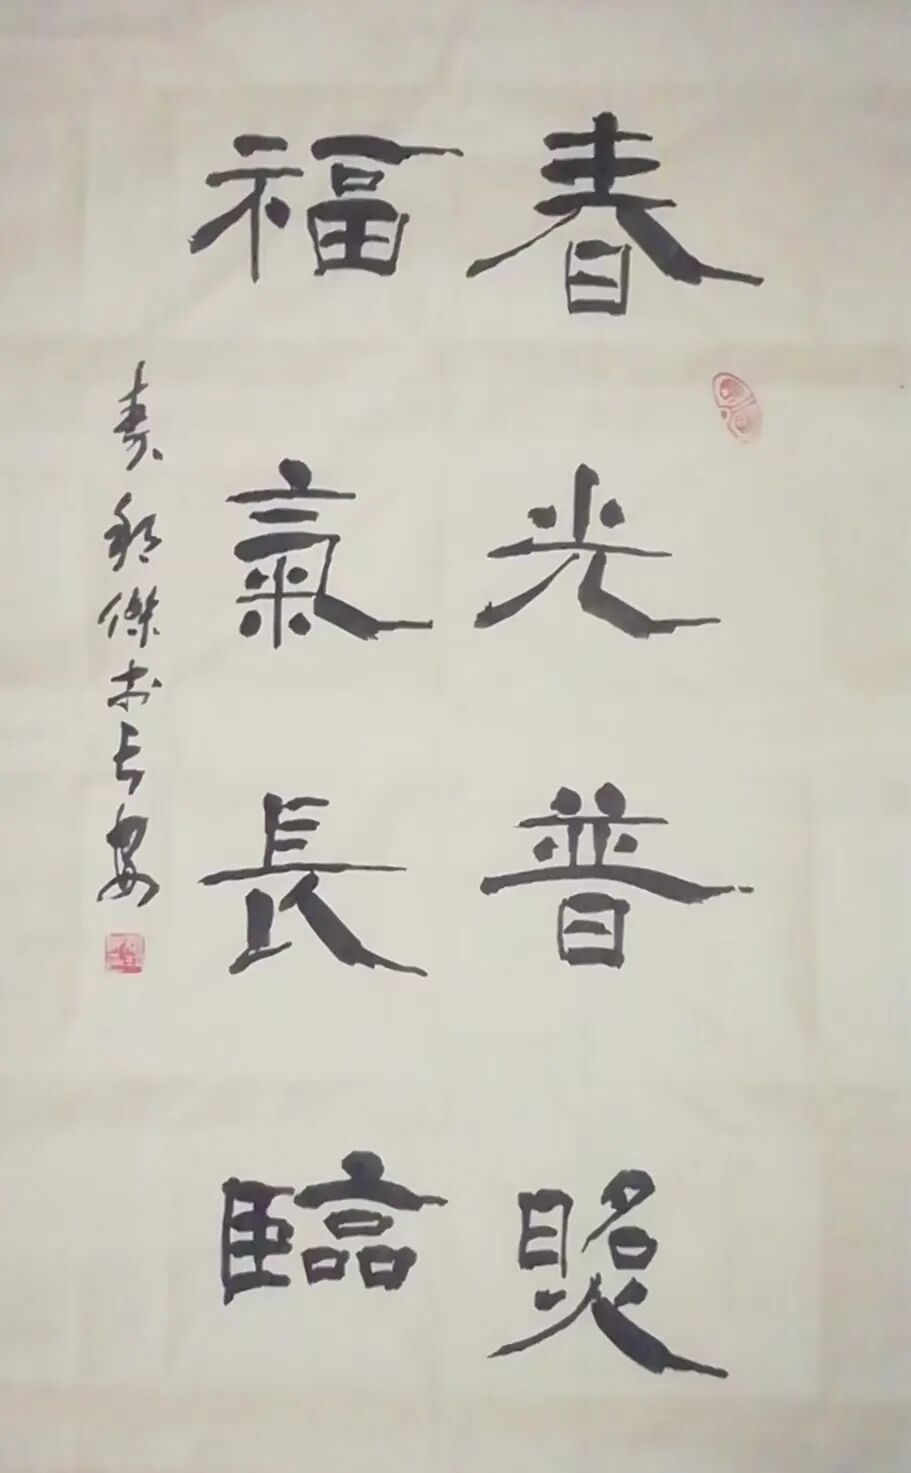 春光普照
福氣長臨
傑书长安